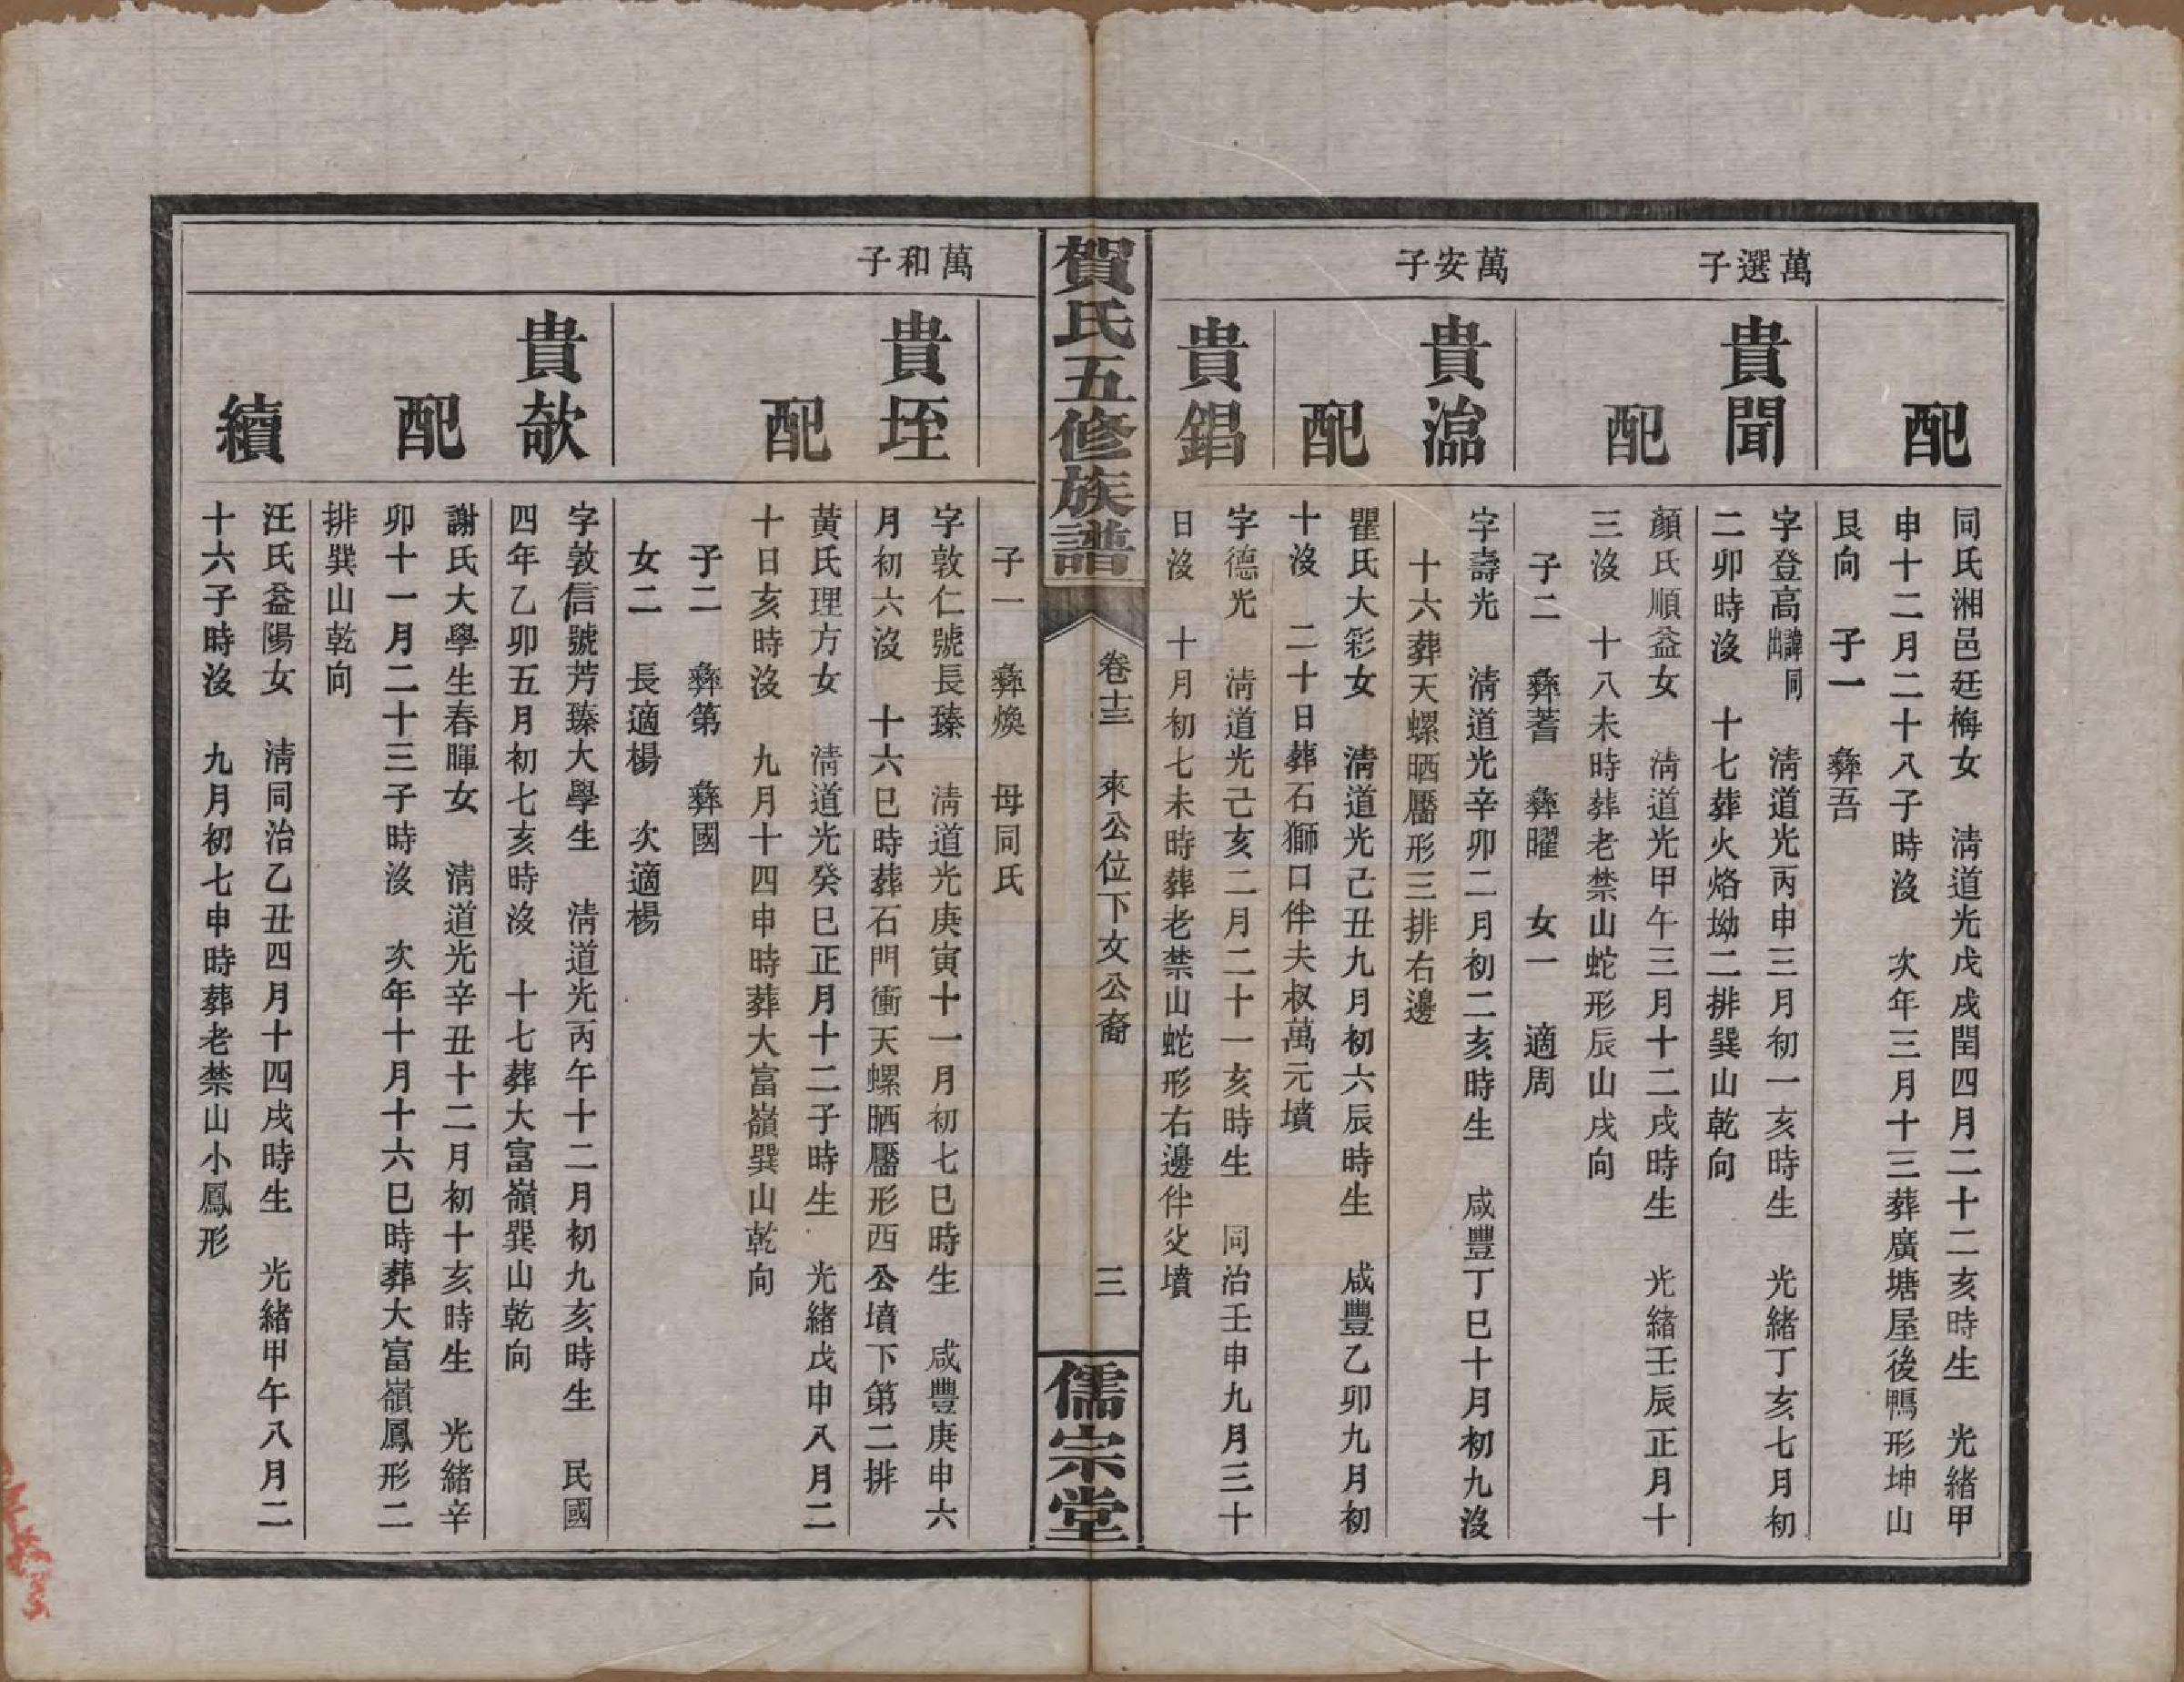 配
同氏湘邑廷梅女　清道光戊戌閏四月二十二亥時生　光緒甲
申十二月二十八子時沒　次年三月十三葬廣塘屋後鴨形坤山
艮向　子一　彝吾
萬選子
貴聞
字登高譜同出　清道光丙申三月初一亥時生　光緒丁亥七月初
二卯時沒　十七葬火烙坳二排巽山乾向
配
顏氏順益女　清道光甲午三月十二戌時生　光緒壬辰正月十
三沒　十八未時葬老禁山蛇形辰山戌向
子二　彝蓍　彝曜　女一　適周
萬安子
貴溫
字壽光　清道光辛卯二月初二亥時生　咸豐丁巳十月初九沒
十六葬天螺晒靨形三排右邊
配
瞿氏大彩女　清道光己丑九月初六辰時生　咸豐乙卯九月初
十沒　二十日葬石獅口伴夫叔萬元墳
貴錩
字德光　清道光己亥二月二十一亥時生　同治壬申九月三十
日沒　十月初七未時葬老禁山蛇形右邊伴父墳
賀氏五修族譜
卷十三　來公位下女公裔　三
儒宗堂
子一　彝煥　母同氏
萬和子
貴垤
字敦仁號長瑧　清道光庚寅十一月初七巳時生　咸豐庚申六
月初六沒　十六巳時葬石門衝天螺晒靨形西公墳下第二排
配
黃氏理方女　清道光癸巳正月十二子時生　光緒戊申八月二
十日亥時沒　九月十四申時葬大富嶺巽山乾向
子二　彝第　彝國
女二　長適楊　次適楊
貴欹
字敦信號芳瑧大學生　清道光丙午十二月初九亥時生　民國
四年乙卯五月初七亥時沒　十七葬大富嶺巽山乾向
配
謝氏大學生春暉女　清道光辛丑十二月初十亥時生　光緒辛
卯十一月二十三子時沒　次年十月十六巳時葬大富嶺鳳形二
排巽山乾向
續
汪氏益陽女　清同治乙丑四月十四戌時生　光緒甲午八月二
十六子時沒　九月初七申時葬老禁山小鳳形